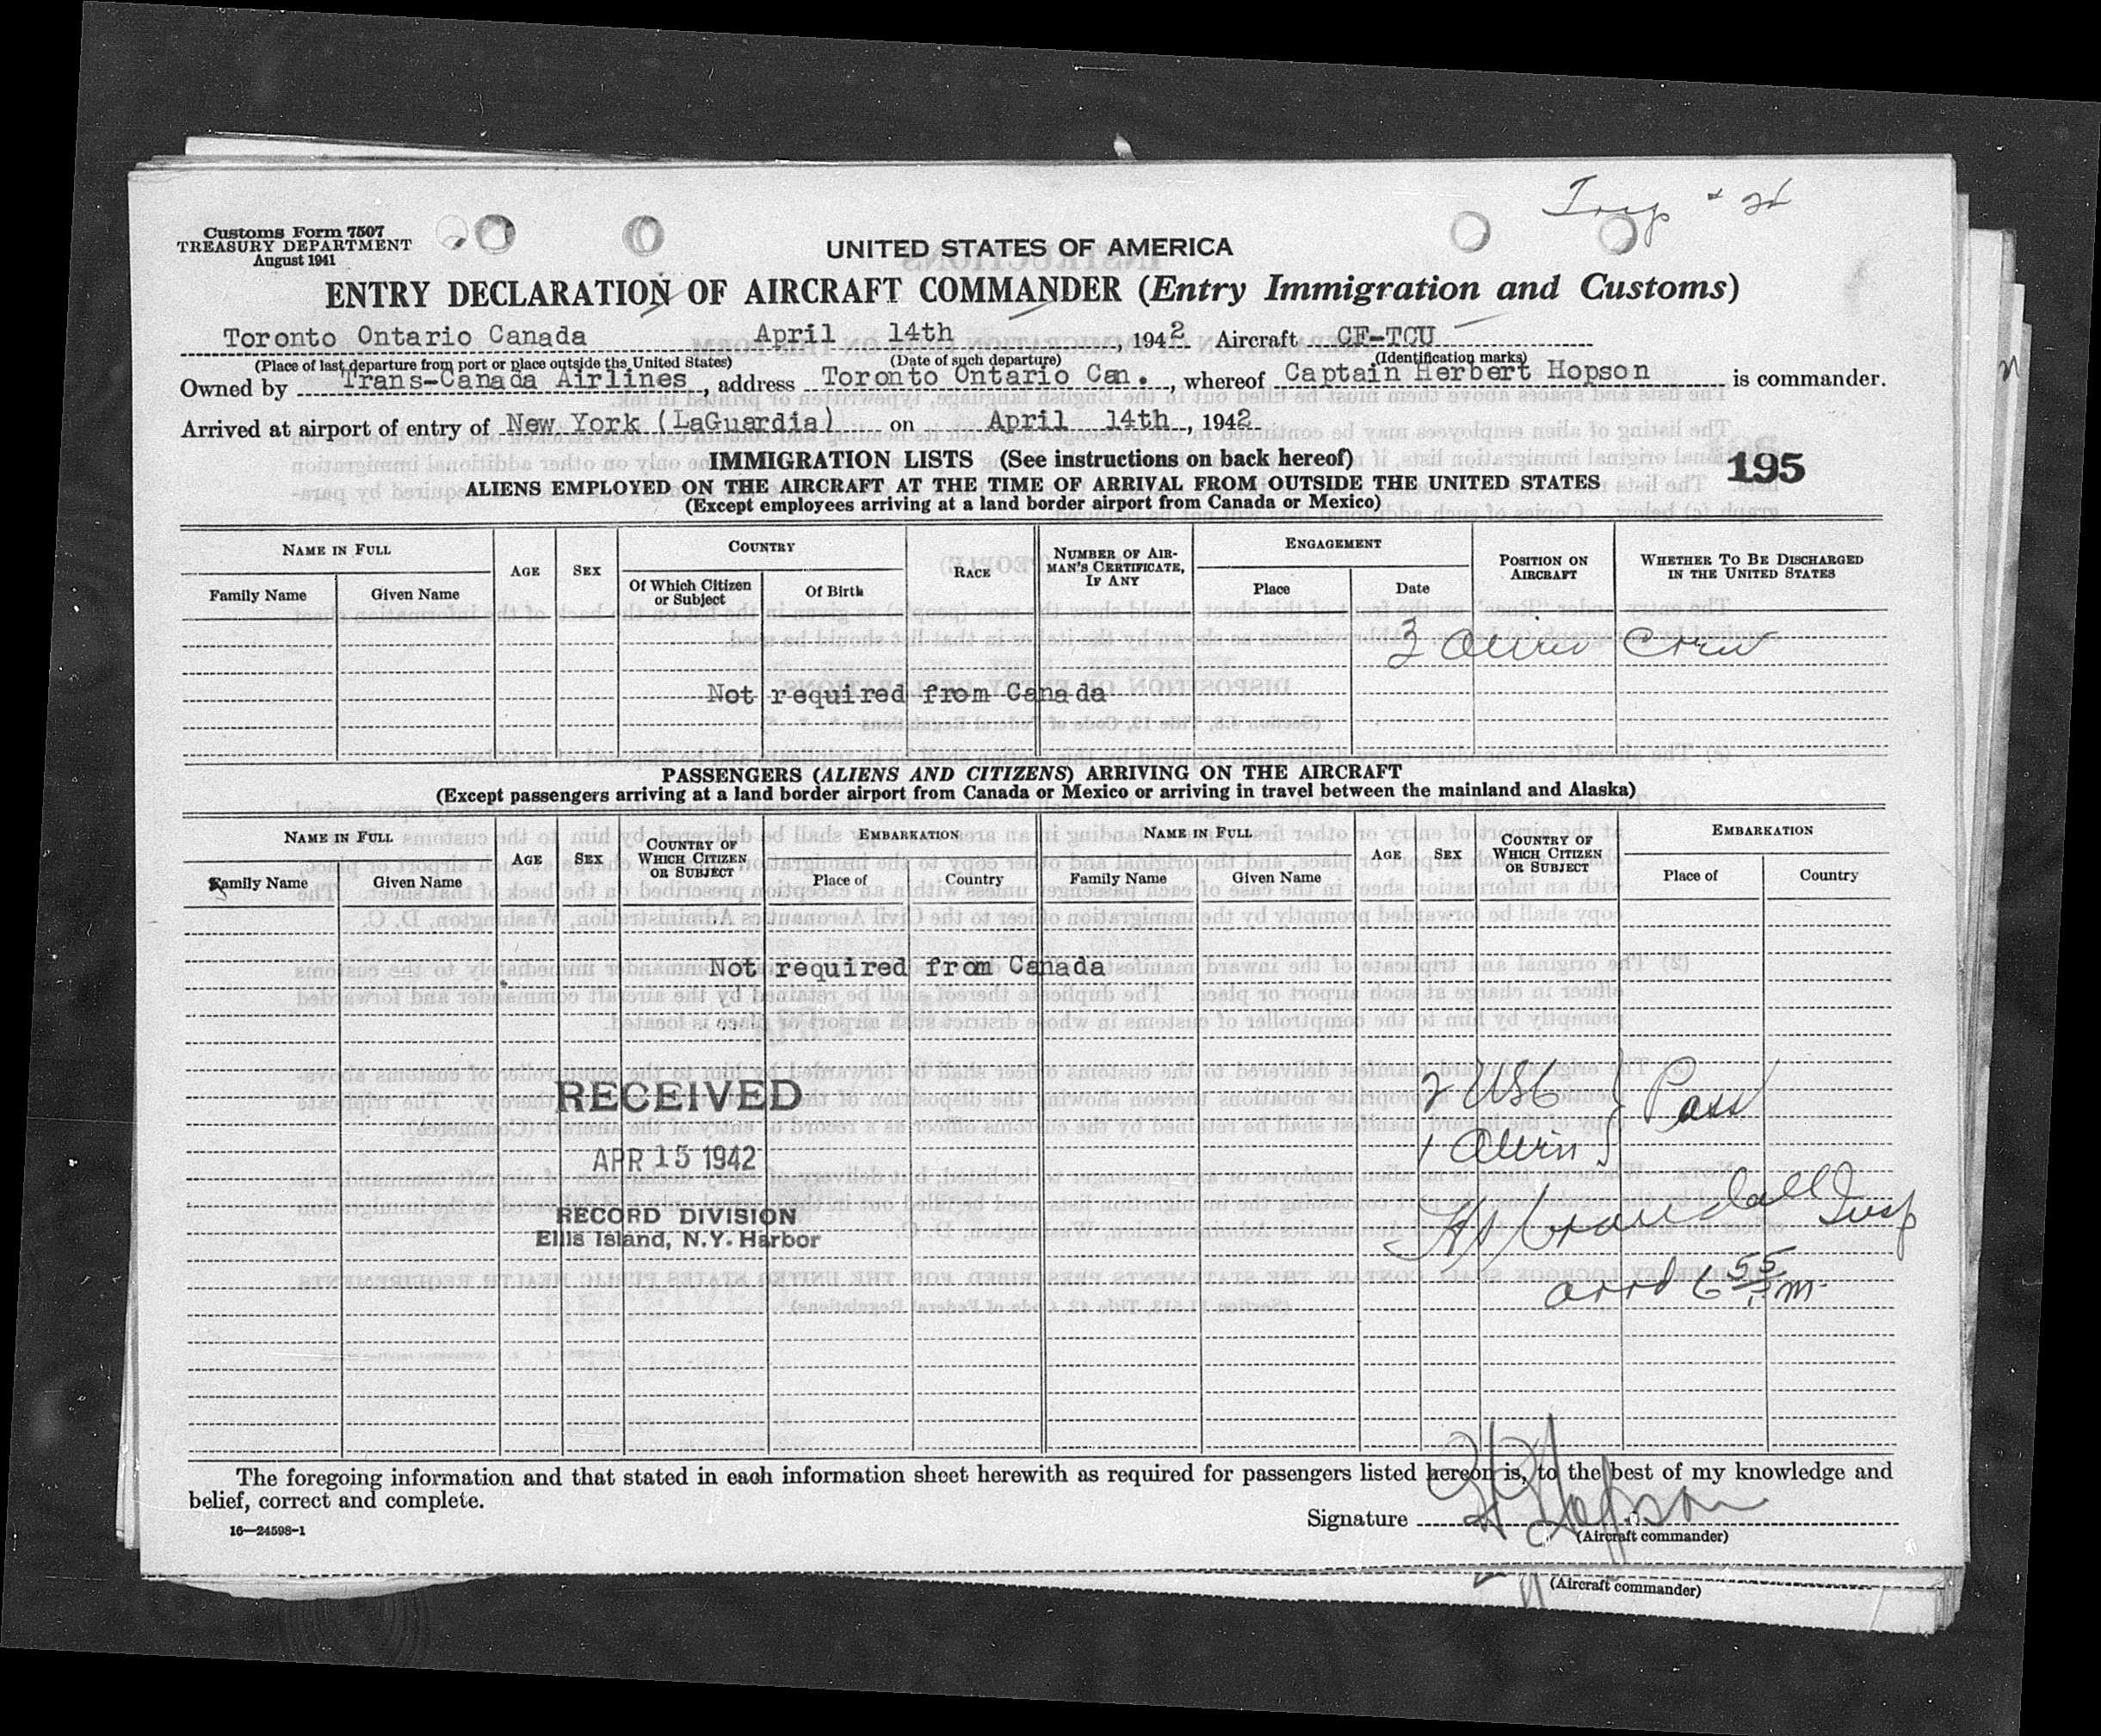 Customs Form 7507
TREASURY DEPARTMENT
August 1941
UNITED STATES OF AMERICA
ENTRY DECLARATION OF AIRCRAFT COMMANDER (Entry Immigration and Customs)
Toronto Ontario Canada April 14th, 1942 Aircraft CF-TCU
(Place of last departure from port or place outside the United States) (Date of such departure) (Identification marks)
Owned by Trans-Canada Airlines, address Toronto Ontario Can., whereof Captain Herbert Hopson is commander.
Arrived at airport of entry of New York (LaGuardia) on April 14th, 1942
IMMIGRATION LISTS (See instructions on back hereof)
195
ALIENS EMPLOYED ON THE AIRCRAFT AT THE TIME OF ARRIVAL FROM OUTSIDE THE UNITED STATES
(Except employees arriving at a land border airport from Canada or Mexico)
NAME IN FULL AGE SEX COUNTRY RACE NUMBER OF AIRMAN'S CERTIFICATE, IF ANY ENGAGEMENT POSITION ON AIRCRAFT WHETHER TO BE DISCHARGED IN THE UNITED STATES
Family Name Given Name Of Which Citizen or Subject Of Birth Place Date
3 Alien Crew
Not required from Canada
PASSENGERS (ALIENS AND CITIZENS) ARRIVING ON THE AIRCRAFT
(Except passengers arriving at a land border airport from Canada or Mexico or arriving in travel between the mainland and Alaska)
NAME IN FULL AGE SEX COUNTRY OF WHICH CITIZEN OR SUBJECT EMBARKATION NAME IN FULL AGE SEX COUNTRY OF WHICH CITIZEN OR SUBJECT EMBARKATION
Family Name Given Name Place of Country Family Name Given Name Place of Country
Not required from Canada
2 USC } Pass
1 Alien
RECEIVED
APR 15 1942
RECORD DIVISION
Ellis Island, N.Y. Harbor
Crandall Insp
arrd 6 55 P.m.
The foregoing information and that stated in each information sheet herewith as required for passengers listed hereon is, to the best of my knowledge and
belief, correct and complete.
Signature H Hopson
16—24598-1
(Aircraft commander)
(Aircraft commander)